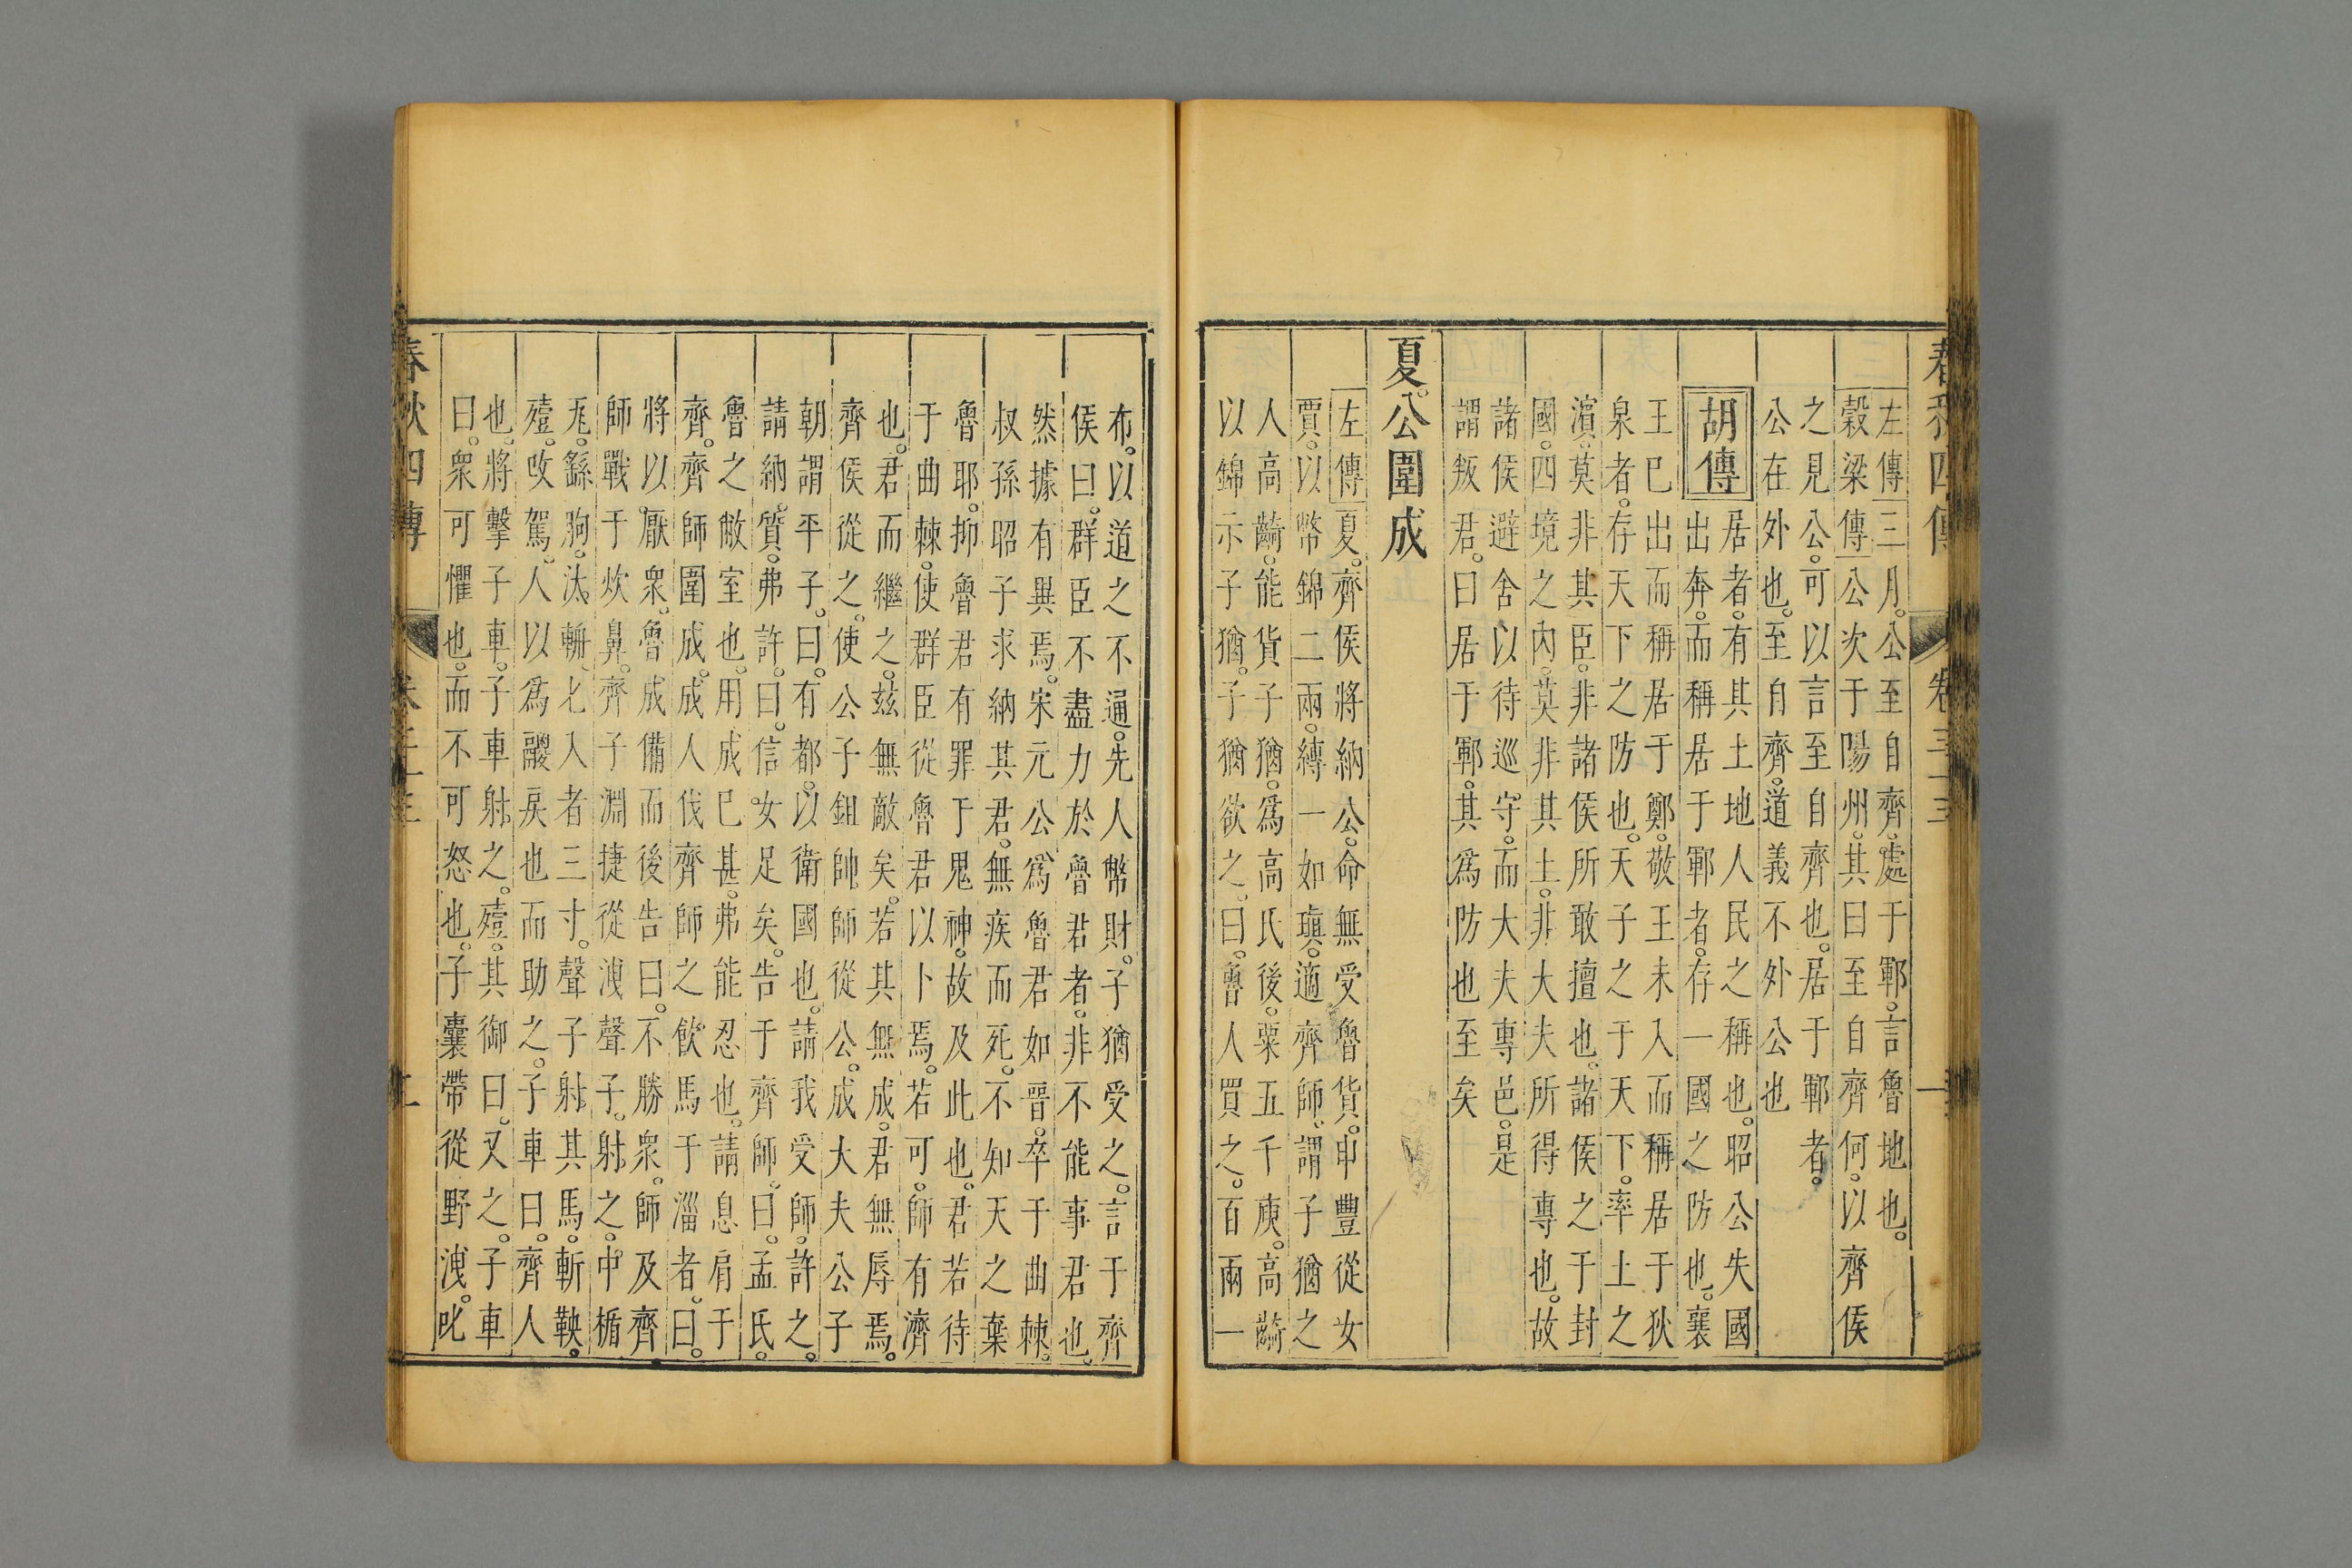 春秋四傳 卷三十三 一
左傳三月。公至自齊。處于鄆。言魯地也。
穀梁傳公次于陽州。其曰至自齊何。以齊侯
之見公。可以言至自齊也。居于鄆者。
公在外也。至自齊。道義不外公也
胡傳
居者。有其土地人民之稱也。昭公失國
出奔。而稱居于鄆者。存一國之防也。襄
王巳出而稱居于鄭。敬王未入而稱居于狄
泉者。存天下之防也。天子之于天下。率土之
濵。莫非其臣。非諸侯所敢擅也。諸侯之于封
國。四境之內。莫非其土。非大夫所得專也。故
諸侯避舍以待巡守。而大夫專邑。是
謂叛君。曰居于鄆。其爲防也至矣
夏。公圍成
左傳夏。齊侯將納公。命無受魯貨。申豐從女
賈。以幣錦二兩。縛一如瑱。適齊師。謂子猶之
人高齮。能貨子猶。爲高氏後。粟五千庾。高齮
以錦示子猶。子猶欲之。曰。魯人買之。百兩一
布。以道之不通。先人幣財。子猶受之。言于齊
侯曰。群臣不盡力於魯君者。非不能事君也。
然據有異焉。宋元公爲魯君如晋。卒于曲棘。
叔孫昭子求納其君。無疾而死。不知天之棄
魯耶。抑魯君有罪于鬼神。故及此也。君若待
于曲棘。使群臣從魯君以卜焉。若可。師有濟
也。君而繼之。兹無敵矣。若其無成。君無辱焉。
齊侯從之。使公子鉏帥師從公。成大夫公子
朝謂平子。曰。有都。以衛國也。請我受師。許之。
請納質。弗許。曰。信女足矣。告于齊師。曰。孟氏。
魯之敝室也。用成巳甚。弗能忍也。請息肩于
齊。齊師圍成。成人伐齊師之飲馬于淄者。曰。
將以厭衆。魯成備而後告曰。不勝衆。師及齊
師戰于炊鼻。齊子淵捷從洩聲子。射之。中楯
瓦。繇朐。汰輈。匕入者三寸。聲子射其馬。斬鞅。
殪。改駕。人以爲鬷戾也而助之。子車曰。齊人
也。將擊子車。子車射之。殪。其御曰。又之。子車
曰。衆可懼也。而不可怒也。子囊帶從野洩。叱
春秋四傳